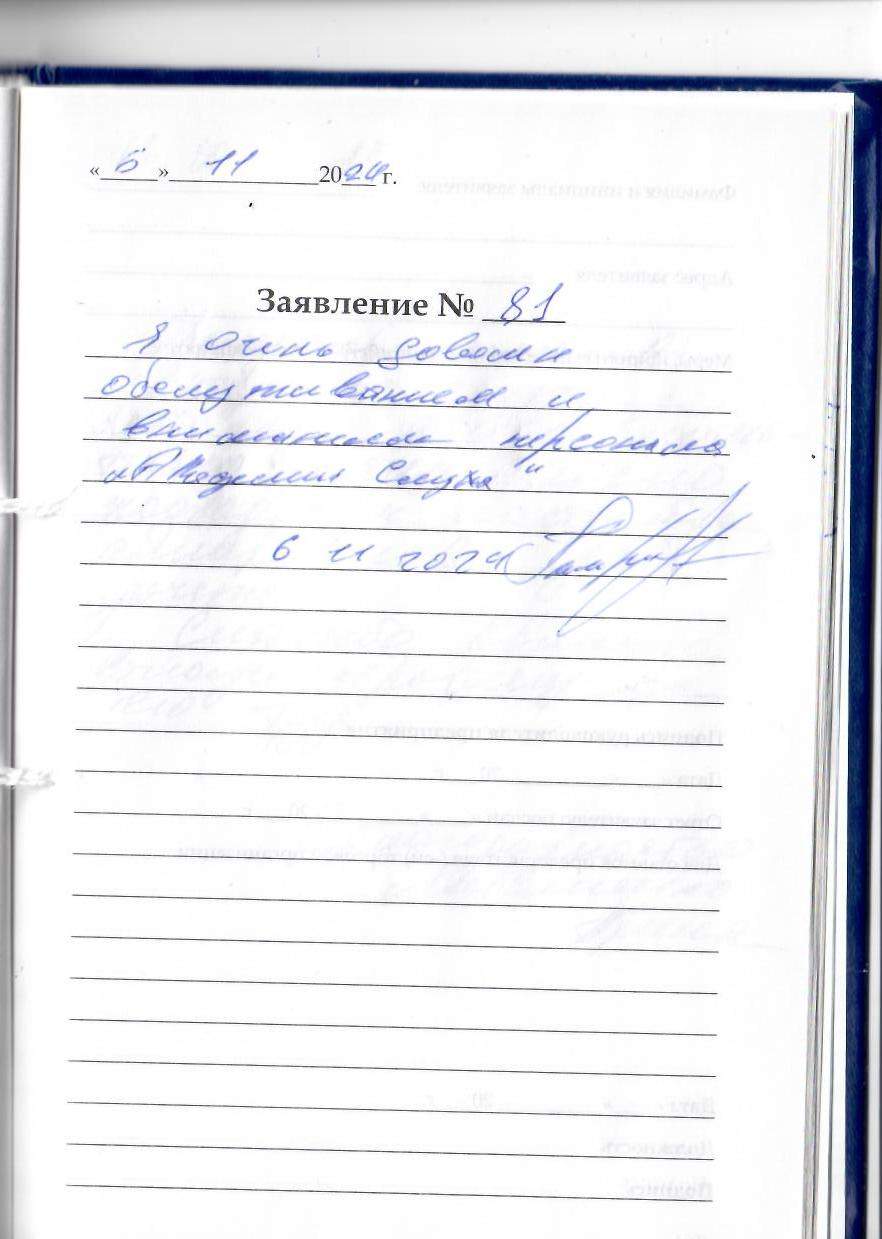 « 6 » 11 2024 г.
Заявление № 81
Я очень доволен
обслуживанием и
вниманием персонала
„Академии Слуха"
6 11 2024